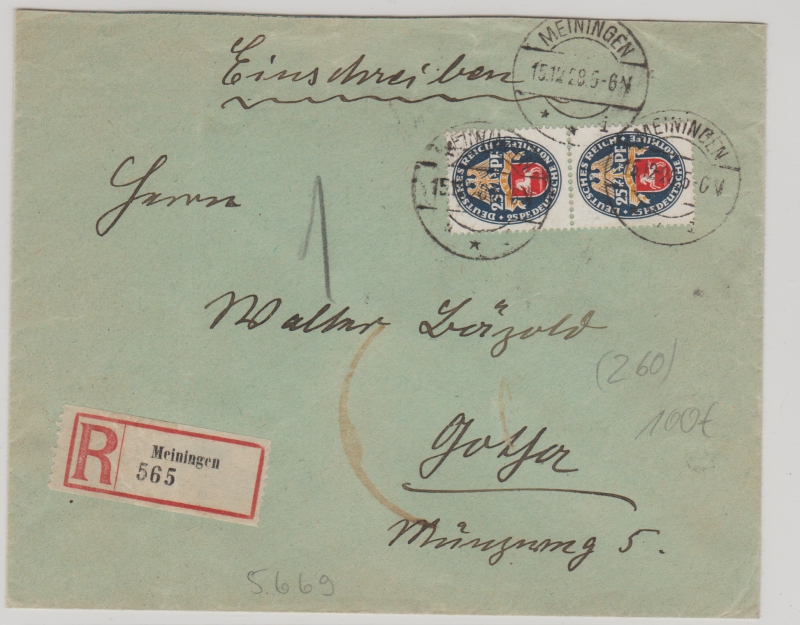 Einschreiben
MEININGEN
15.12.28.5-6N
1
MEININGEN
DEUTSCHES REICH
DEUTSCHE NOTHILFE
25 PF
DEUTSCHES REICH
DEUTSCHE NOTHILFE
25 PF
MEININGEN
Herrn
1
Walter
Gotha
Münzweg 5.
R
Meiningen
565
(260)
100€
5.669